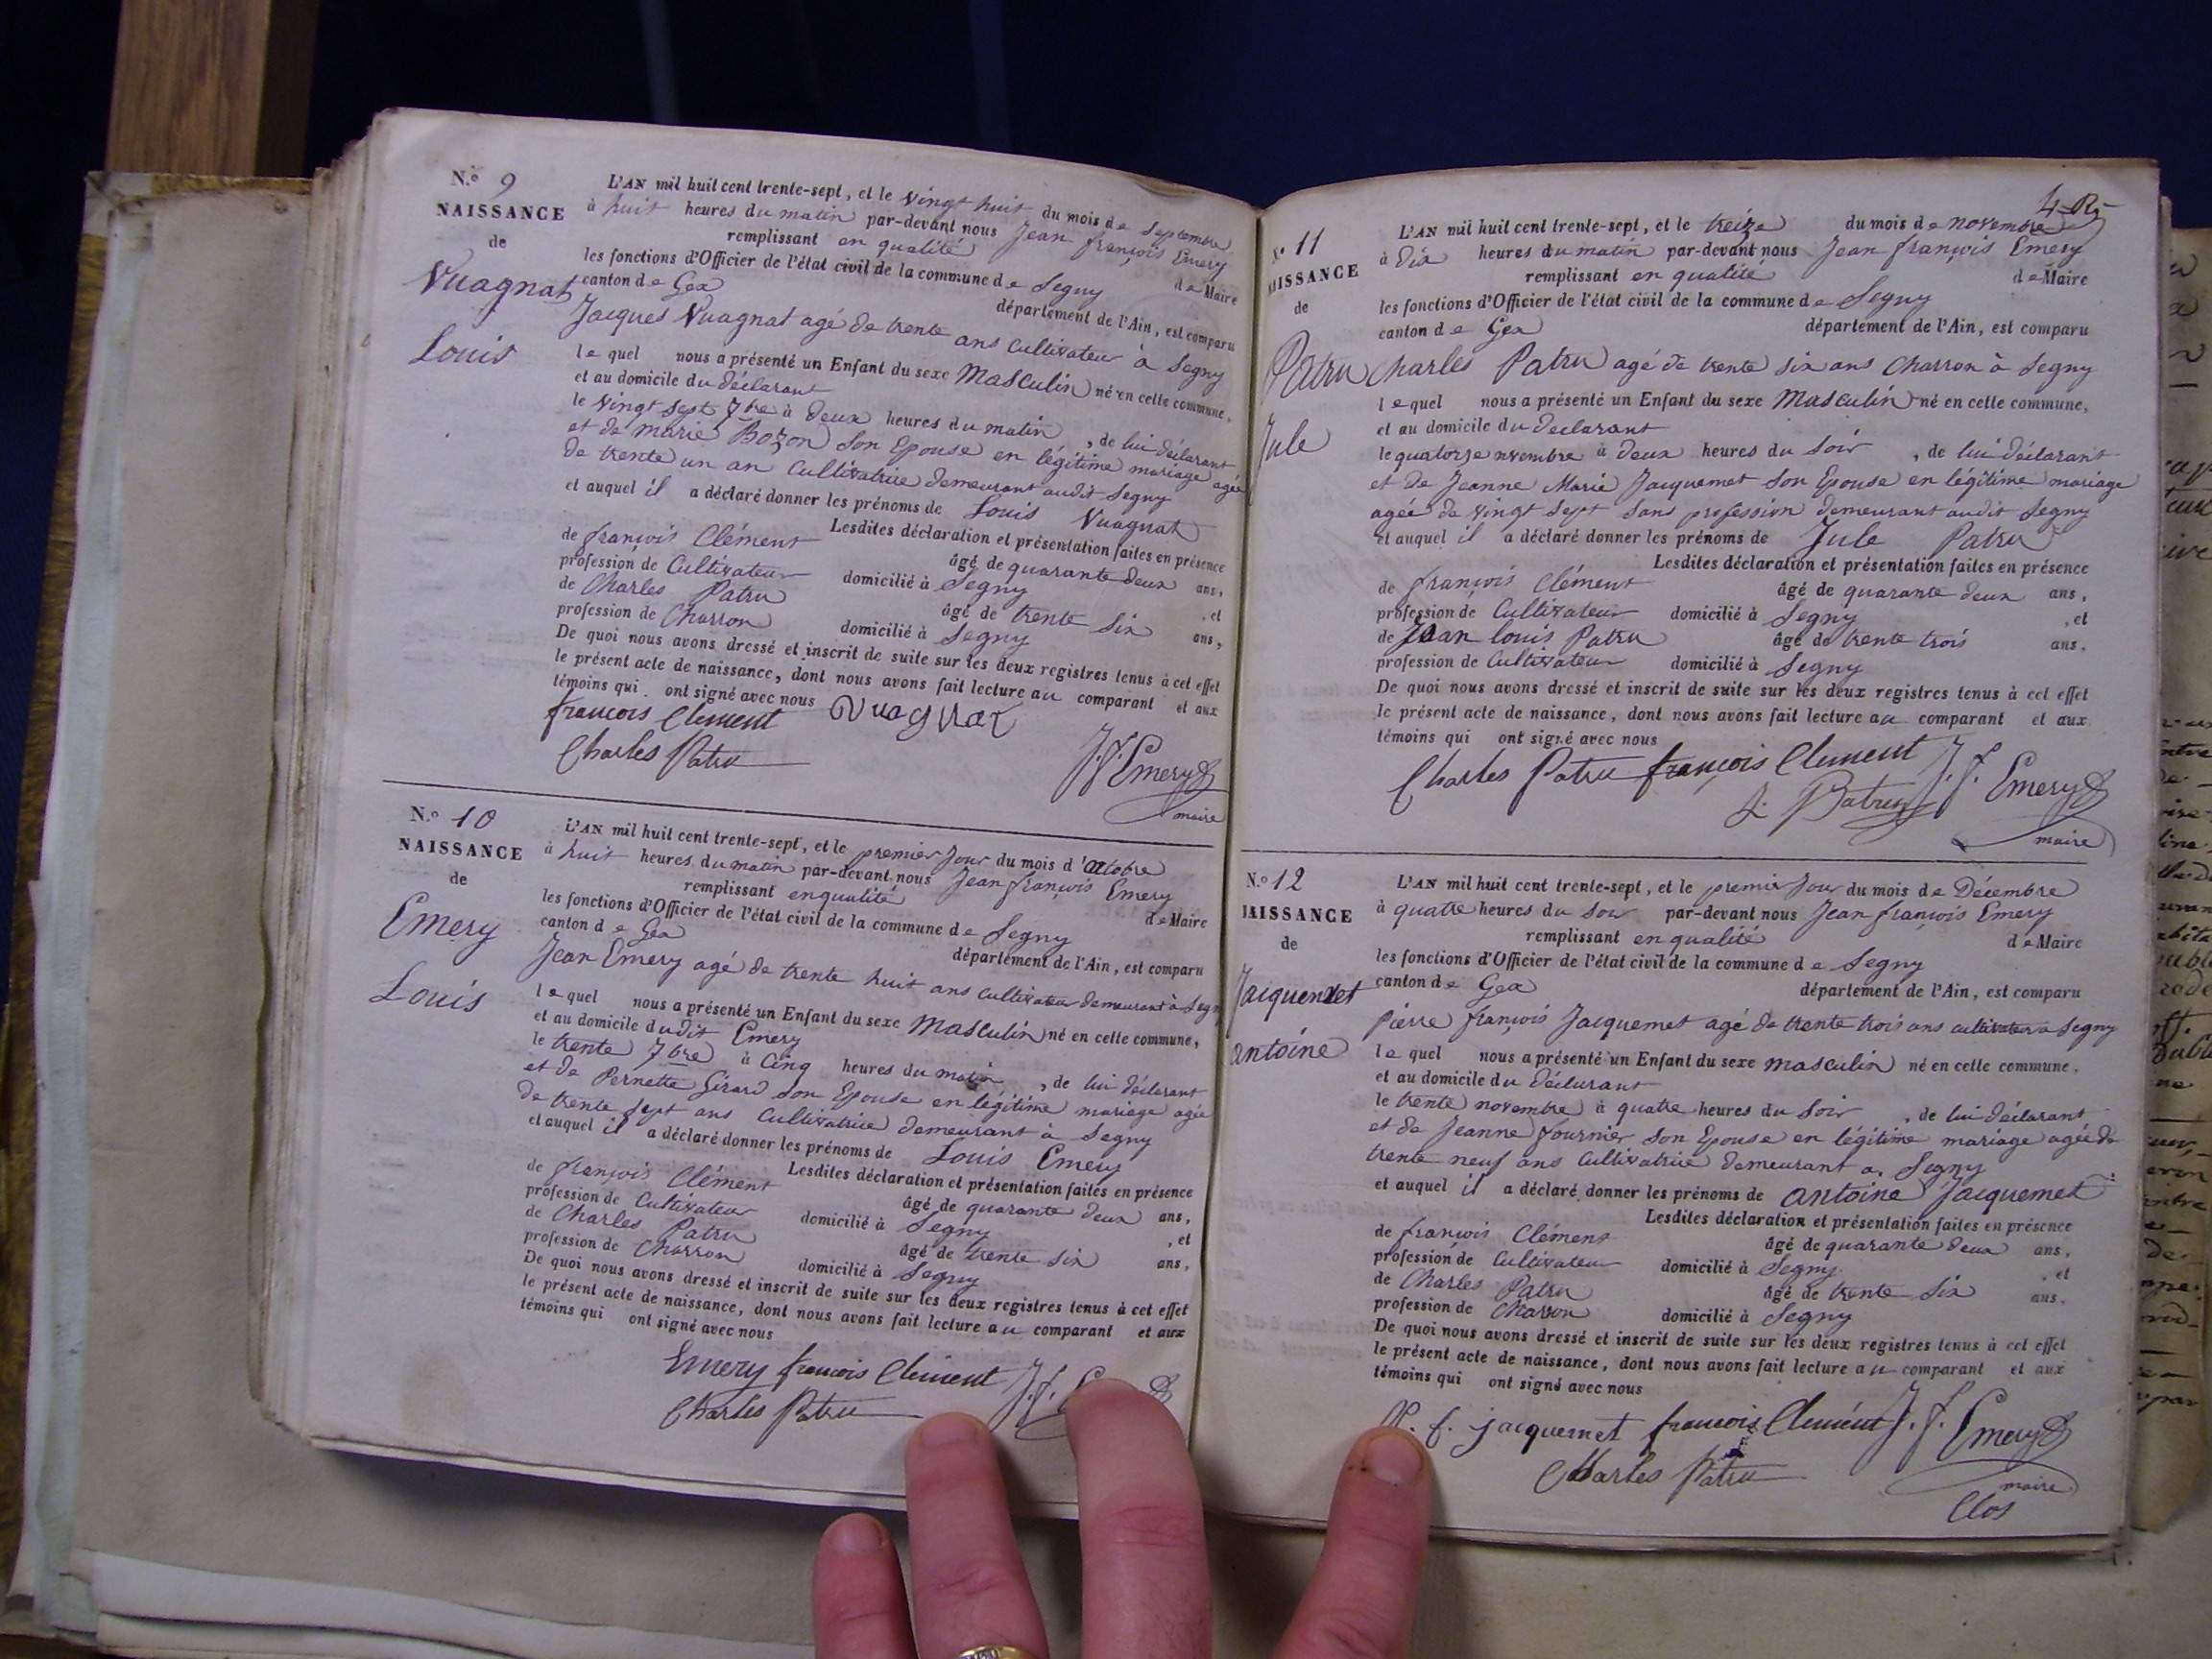 N.° 9
NAISSANCE
de
Vuagnat
Louis
L'AN mil huit cent trente-sept, et le vingt huit du mois de Septembre
à huit heures du matin par-devant nous Jean françois Emery
remplissant en qualité de Maire
les fonctions d'Officier de l'état civil de la commune de Segny
canton de Gex département de l'Ain, est comparu
Jacques Vuagnat agé de trente ans cultivateur à Segny
lequel nous a présenté un Enfant du sexe Masculin né en cette commune,
et au domicile du déclarant
le vingt sept 7bre à deux heures du matin, de lui déclarant
et de marie Bozon son Epouse en légitime mariage agée
de trente un an Cultivatrice demeurant audit Segny
et auquel il a déclaré donner les prénoms de Louis Vuagnat
Lesdites déclaration et présentation faites en présence
de françois Clément âgé de quarante deux ans,
profession de Cultivateur domicilié à Segny, et
de Charles Patru âgé de trente six ans,
profession de Charron domicilié à Segny
De quoi nous avons dressé et inscrit de suite sur les deux registres tenus à cet effet
le présent acte de naissance, dont nous avons fait lecture au comparant et aux
témoins qui ont signé avec nous
francois Clement Vuagnat
Charles Patru J.f. Emery
maire
N.° 10
NAISSANCE
de
Emery
Louis
L'AN mil huit cent trente-sept, et le premier Jour du mois d'octobre
à huit heures du matin par-devant nous Jean françois Emery
remplissant en qualité de Maire
les fonctions d'Officier de l'état civil de la commune de Segny
canton de Gex département de l'Ain, est comparu
Jean Emery agé de trente huit ans cultivateur demeurant à Segny
lequel nous a présenté un Enfant du sexe Masculin né en cette commune,
et au domicile dudit Emery
le trente 7bre à Cinq heures du matin, de lui déclarant
et de Pernette Girard son Epouse en légitime mariage agée
de trente sept ans Cultivatrice demeurant à Segny
et auquel il a déclaré donner les prénoms de Louis Emery
Lesdites déclaration et présentation faites en présence
de françois Clément âgé de quarante deux ans,
profession de Cultivateur domicilié à Segny, et
de Charles Patru âgé de trente six ans,
profession de Charron domicilié à Segny
De quoi nous avons dressé et inscrit de suite sur les deux registres tenus à cet effet
le présent acte de naissance, dont nous avons fait lecture au comparant et aux
témoins qui ont signé avec nous
Emery francois Clement J.f.
Charles Patru
N.° 11
AISSANCE
de
Patru
Jule
L'AN mil huit cent trente-sept, et le treize du mois de novembre
à dix heures du matin par-devant nous Jean françois Emery
remplissant en qualité de Maire
les fonctions d'Officier de l'état civil de la commune de Segny
canton de Gex département de l'Ain, est comparu
Charles Patru agé de trente six ans Charron à Segny
lequel nous a présenté un Enfant du sexe Masculin né en cette commune,
et au domicile du déclarant
le quatorze novembre à deux heures du Soir, de lui déclarant
et de Jeanne Marie Jacquemet son Epouse en légitime mariage
agée de vingt sept sans profession demeurant audit Segny
et auquel il a déclaré donner les prénoms de Jule Patru
Lesdites déclaration et présentation faites en présence
de françois Clément âgé de quarante deux ans,
profession de Cultivateur domicilié à Segny, et
de Jean louis Patru âgé de trente trois ans.
profession de Cultivateur domicilié à Segny
De quoi nous avons dressé et inscrit de suite sur les deux registres tenus à cet effet
le présent acte de naissance, dont nous avons fait lecture au comparant et aux
témoins qui ont signé avec nous
Charles Patru françois Clement J.f. Emery
Patru
maire
N.° 12
NAISSANCE
de
Jacquemet
antoine
L'AN mil huit cent trente-sept, et le premier Jour du mois de Décembre
à quatre heures du Soir par-devant nous Jean françois Emery
remplissant en qualité de Maire
les fonctions d'Officier de l'état civil de la commune de Segny
canton de Gex département de l'Ain, est comparu
pierre françois Jacquemet agé de trente trois ans cultivateur a Segny
lequel nous a présenté un Enfant du sexe masculin né en cette commune,
et au domicile du déclarant
le trente novembre à quatre heures du Soir, de lui déclarant
et de Jeanne fournier son Epouse en légitime mariage agée de
trente neuf ans Cultivatrice demeurant a Segny
et auquel il a déclaré donner les prénoms de antoine Jacquemet
Lesdites déclaration et présentation faites en présence
de françois Clément âgé de quarante deux ans,
profession de Cultivateur domicilié à Segny, et
de Charles Patru âgé de trente six ans.
profession de Charron domicilié à Segny
De quoi nous avons dressé et inscrit de suite sur les deux registres tenus à cet effet
le présent acte de naissance, dont nous avons fait lecture au comparant et aux
témoins qui ont signé avec nous
P. f. jacquemet francois Clement J.f. Emery
Charles Patru
maire
Clos